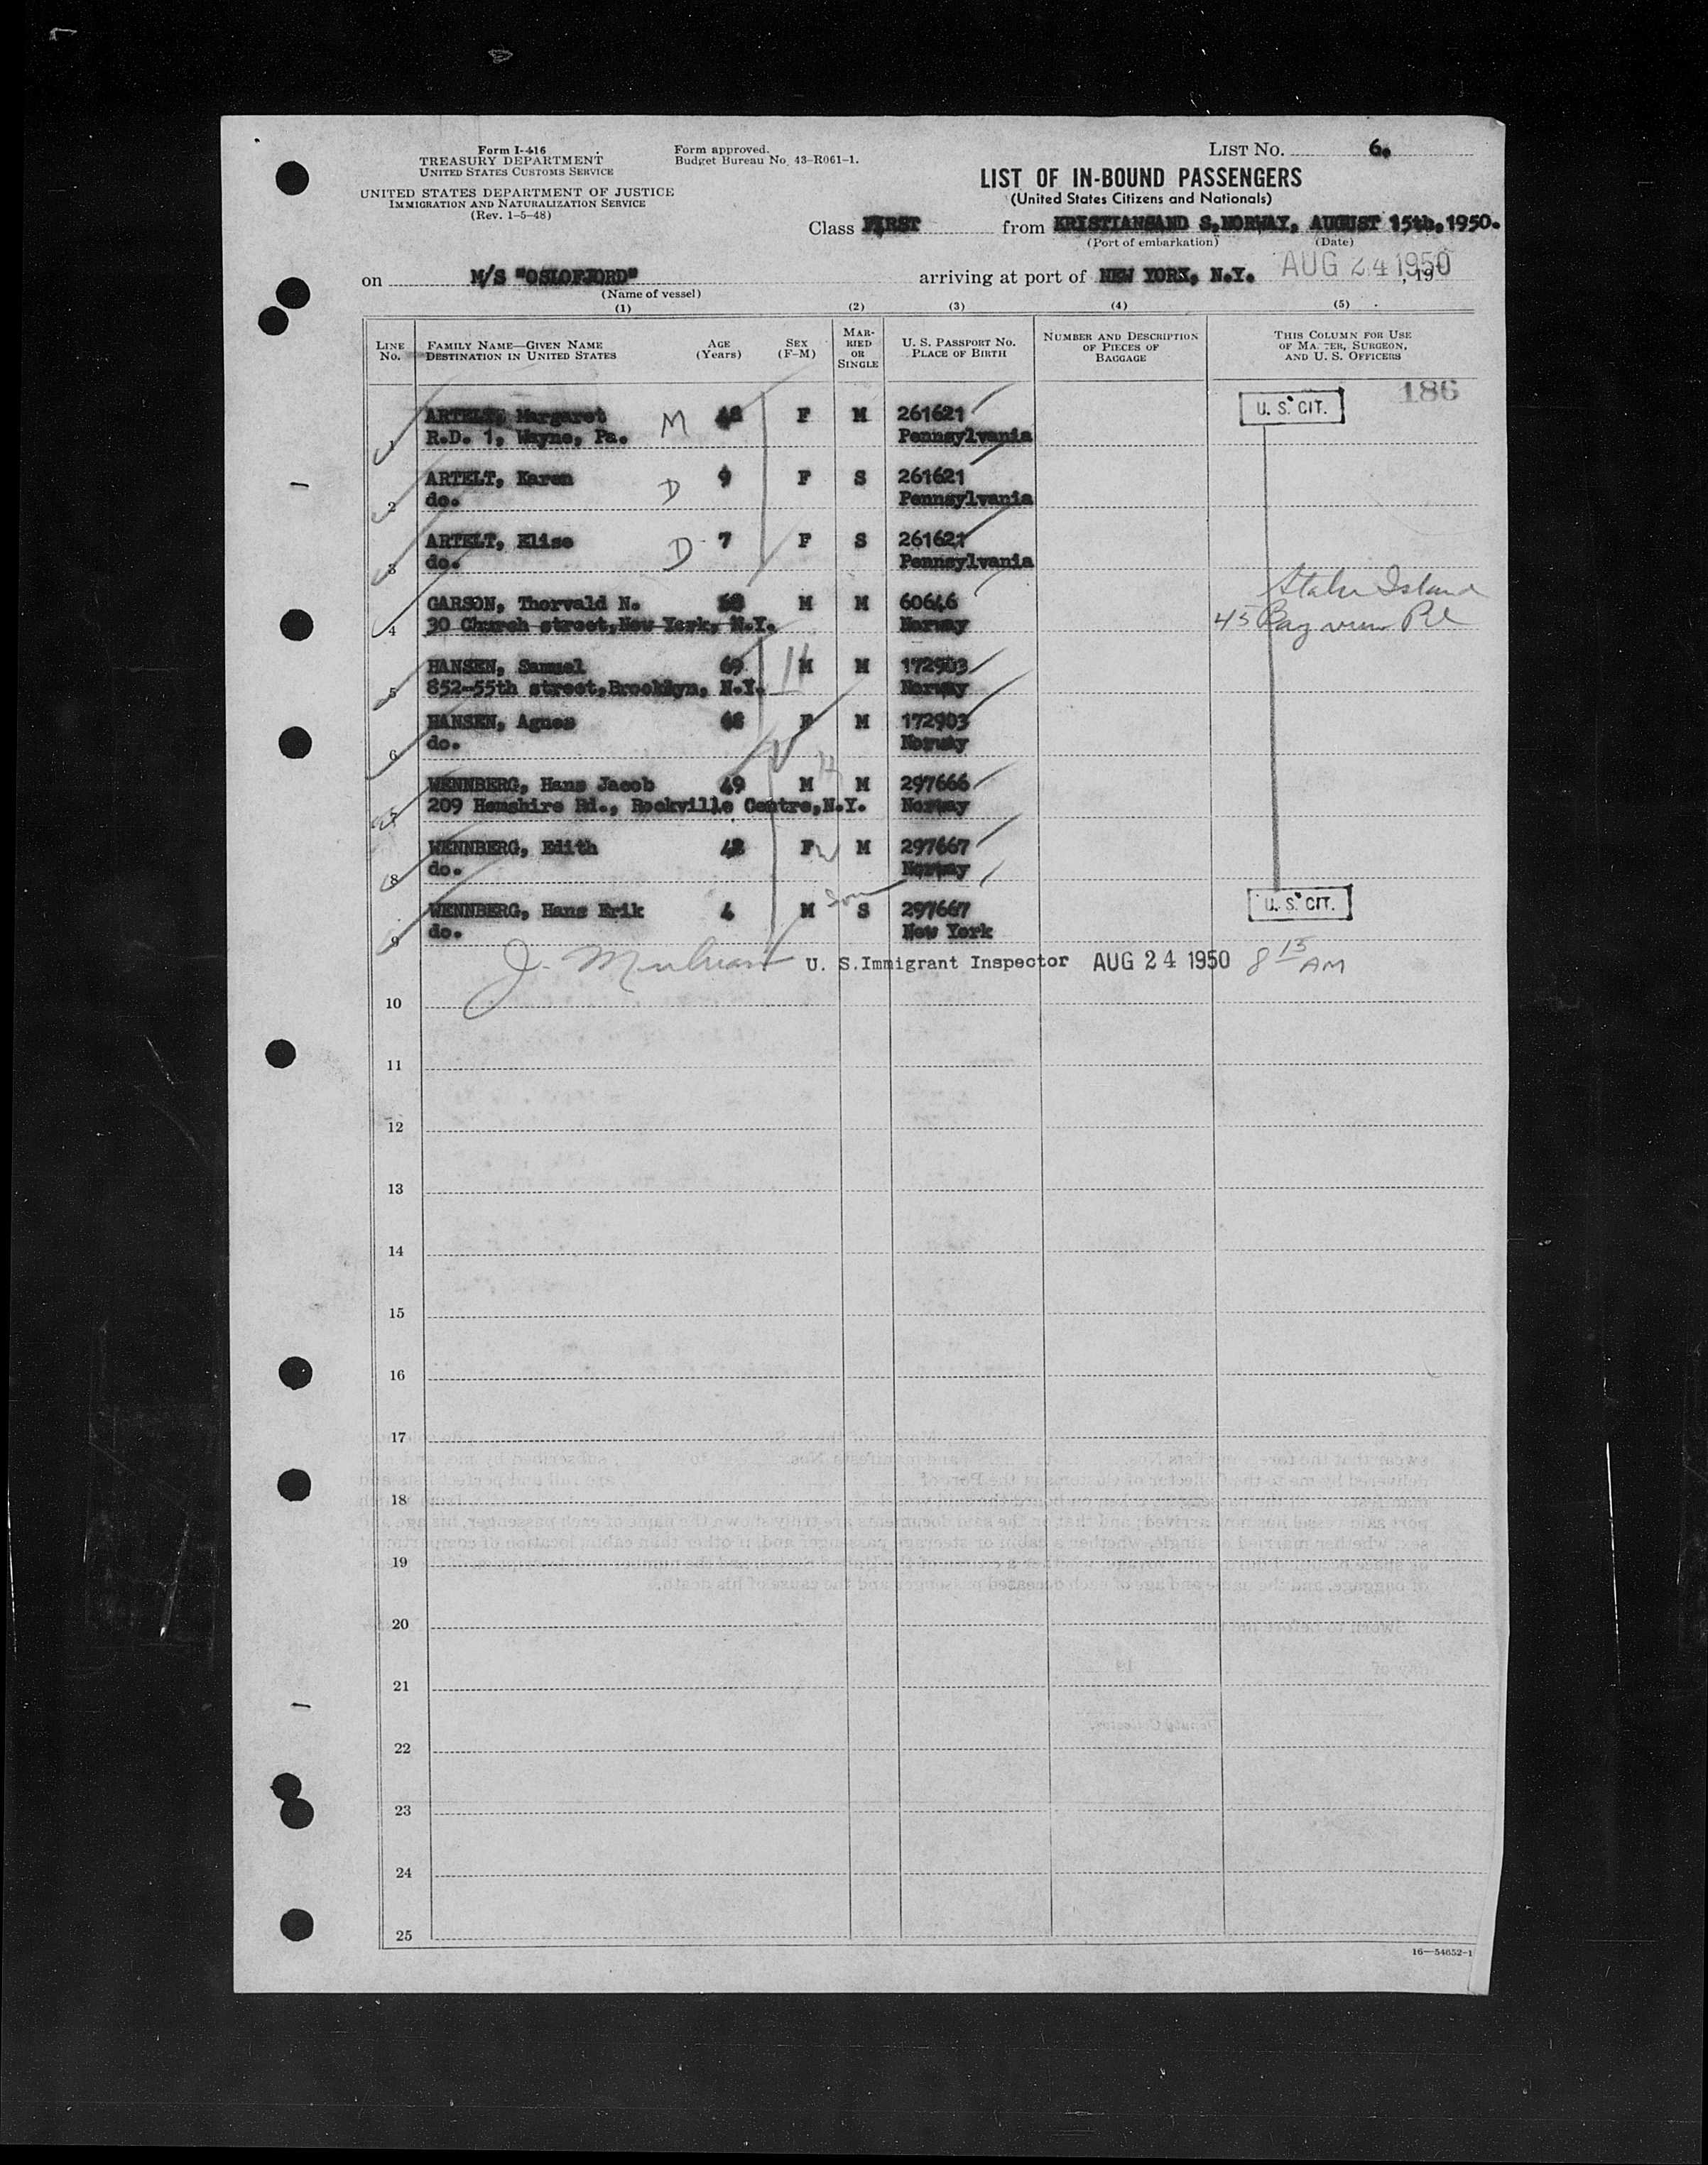 LIST NO. 6.
Form I-416
TREASURY DEPARTMENT
UNITED STATES CUSTOMS SERVICE
UNITED STATES DEPARTMENT OF JUSTICE
IMMIGRATION AND NATURALIZATION SERVICE
(Rev. 1-5-48)
Form approved.
Budget Bureau No. 43-R061-1.
LIST OF IN-BOUND PASSENGERS
(United States Citizens and Nationals)
Class FIRST from KRISTIANSAND S.NORWAY, AUGUST 15th, 1950.
(Port of embarkation) (Date)
on M/S "OSLOFJORD" arriving at port of NEW YORK, N.Y. AUG 24 1950 , 19
(Name of vessel)
(1) (2) (3) (4) (5)
LINE No. FAMILY NAME—GIVEN NAME DESTINATION IN UNITED STATES AGE (Years) SEX (F-M) MARRIED OR SINGLE U. S. PASSPORT NO. PLACE OF BIRTH NUMBER AND DESCRIPTION OF PIECES OF BAGGAGE THIS COLUMN FOR USE OF MASTER, SURGEON, AND U. S. OFFICERS
186
1 ARTELT, Margaret M F M 261621 U. S. CIT.
R.D. 1, Wayne, Pa. Pennsylvania
2 ARTELT, Karen D 9 F S 261621
do. Pennsylvania
3 ARTELT, Elise D 7 F S 261621
do. Pennsylvania
4 GARSON, Thorvald N. M M 60646 Island
30 Church street, New York, N.Y. Norway 45 Bay view Pl
5 HANSEN, Samuel 69 M H M 172903
852-55th street, Brooklyn, N.Y. Norway
6 HANSEN, Agnes F M 172903
do. Norway
7 WENNBERG, Hans Jacob 49 M H M 297666
209 Hemshire Rd., Rockville Centre, N.Y. Norway
8 WENNBERG, Edith 42 F W M 297667
do. Norway
9 WENNBERG, Hans Erik 4 M Son S 297667 U. S. CIT.
do. New York
J. U. S. Immigrant Inspector AUG 24 1950 8 15 AM
10
11
12
13
14
15
16
17
18
19
20
21
22
23
24
25
16—54652-1